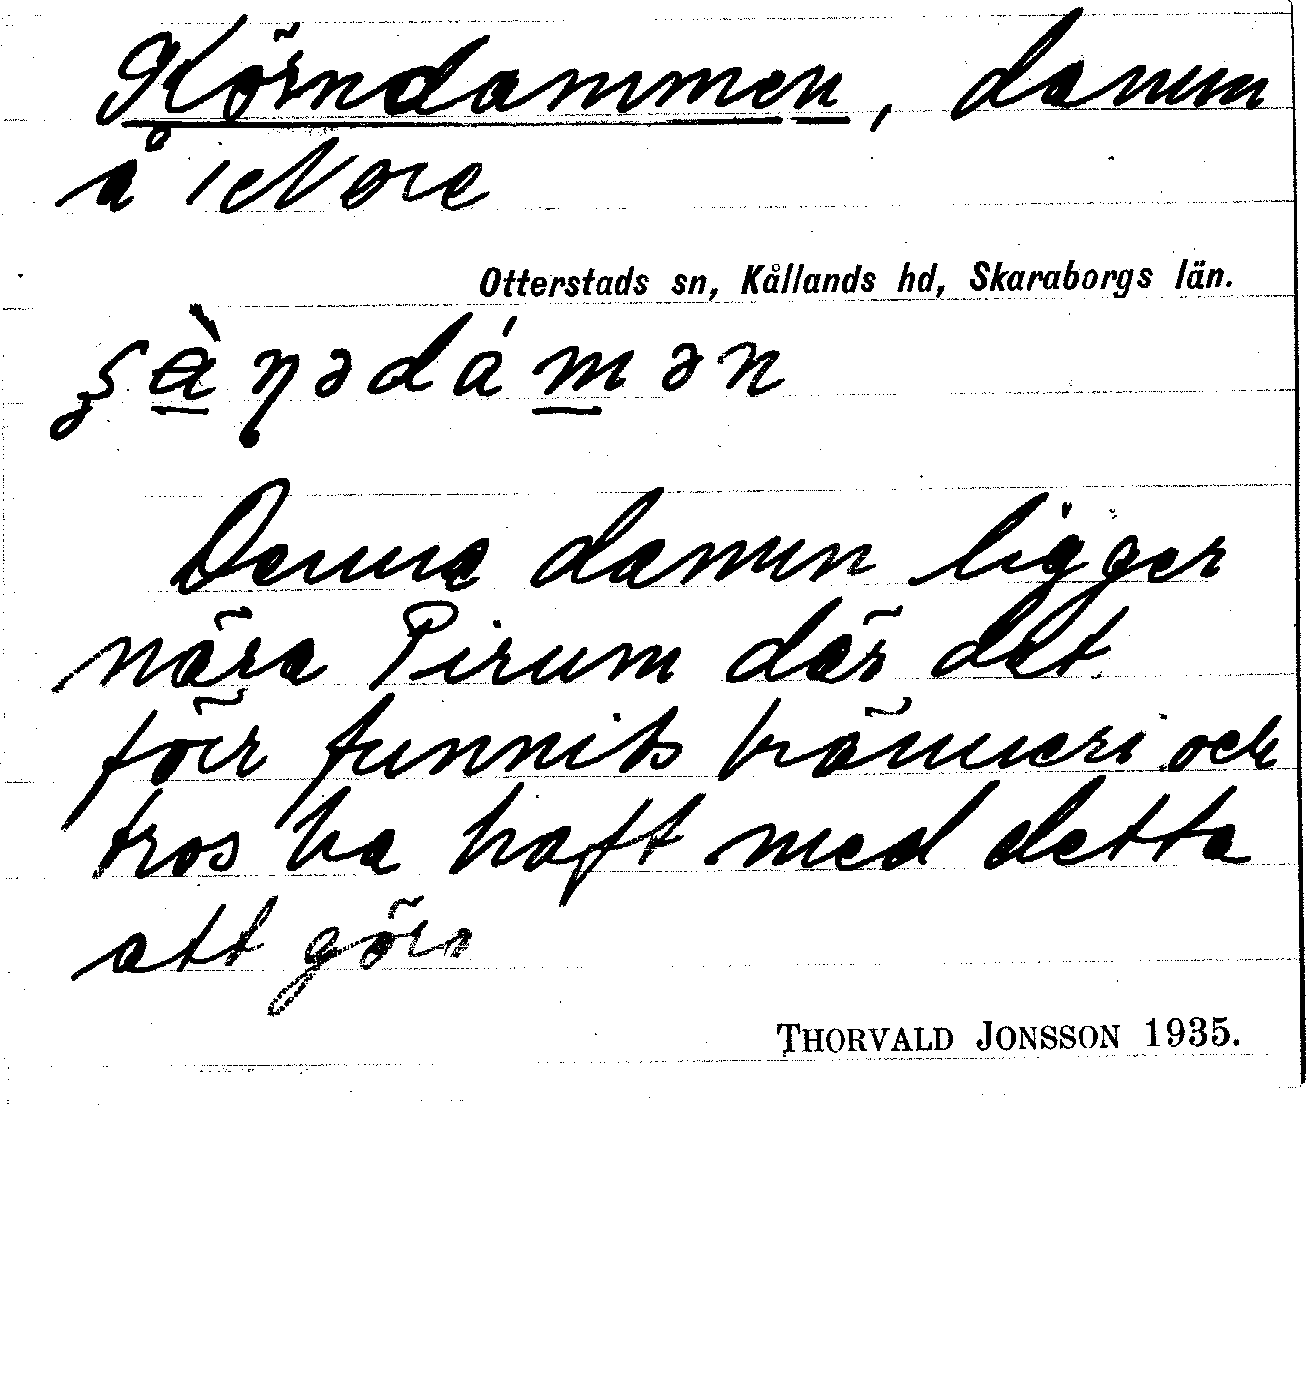 Körndammen, damm
å Nore
Otterstads sn, Kållands hd, Skaraborgs län.
Denna damm ligger
nära Pirum där det
förr funnits bränneri och
tros ha haft med detta
att göra
THORVALD JONSSON 1935.